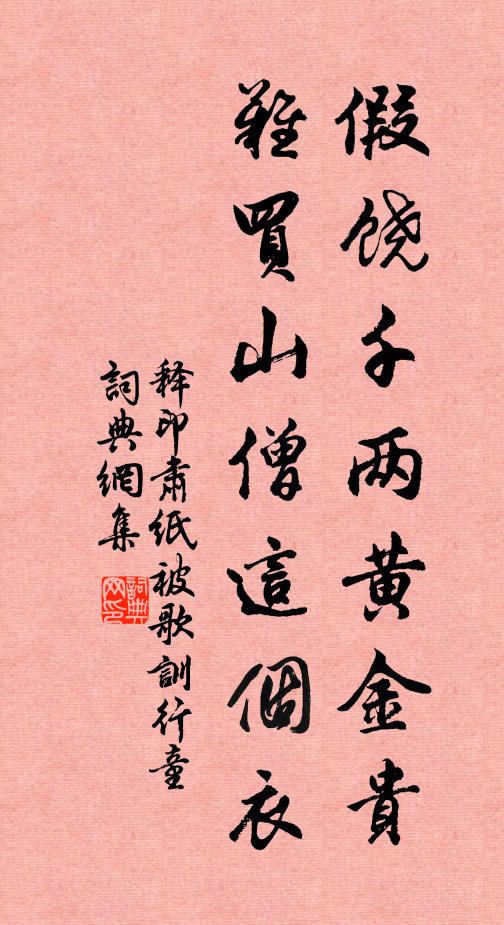 假饶千两黄金貴
難買山僧這個衣
释印肅紙被歌訓行童
詞典網集
詞典网印